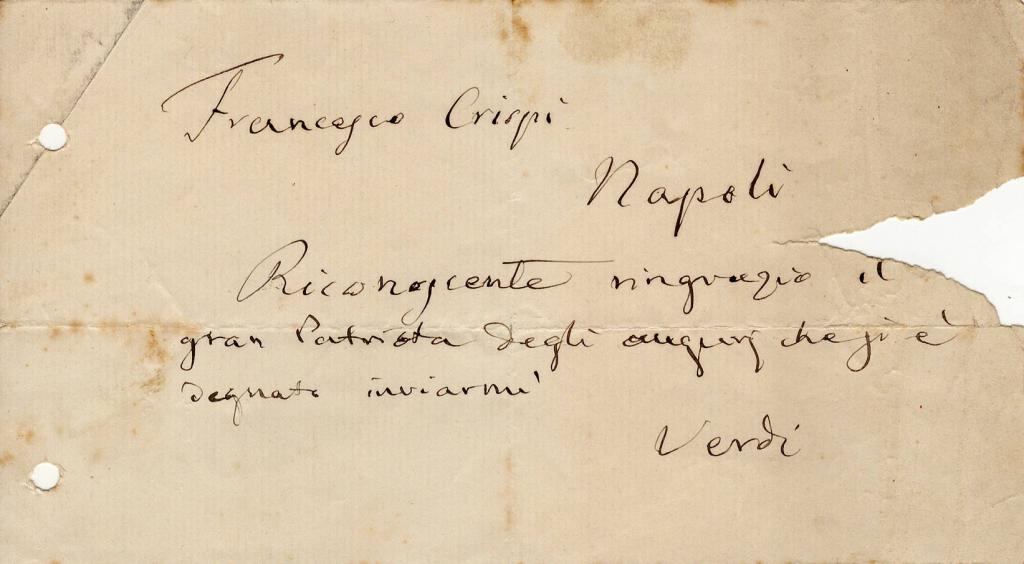 Francesco Crispi
Napoli
Riconoscente ringrazio il
gran Patriota degli augurj che si è
degnato inviarmi
Verdi